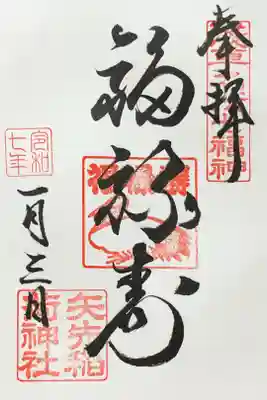 奉拝
福禄寿
令和
七年
一月三日
矢先稲
荷神社